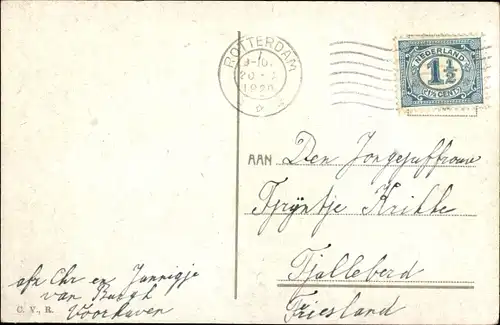 ROTTERDAM
20
NEDERLAND
1½
(1½ CENT)
AAN Den Jongejuffrouw
Tjrÿntje Krikke
Tjalleberd
Friesland
afz Chr en Jannigje
van Bargh
Voorhaven
C. V., R.